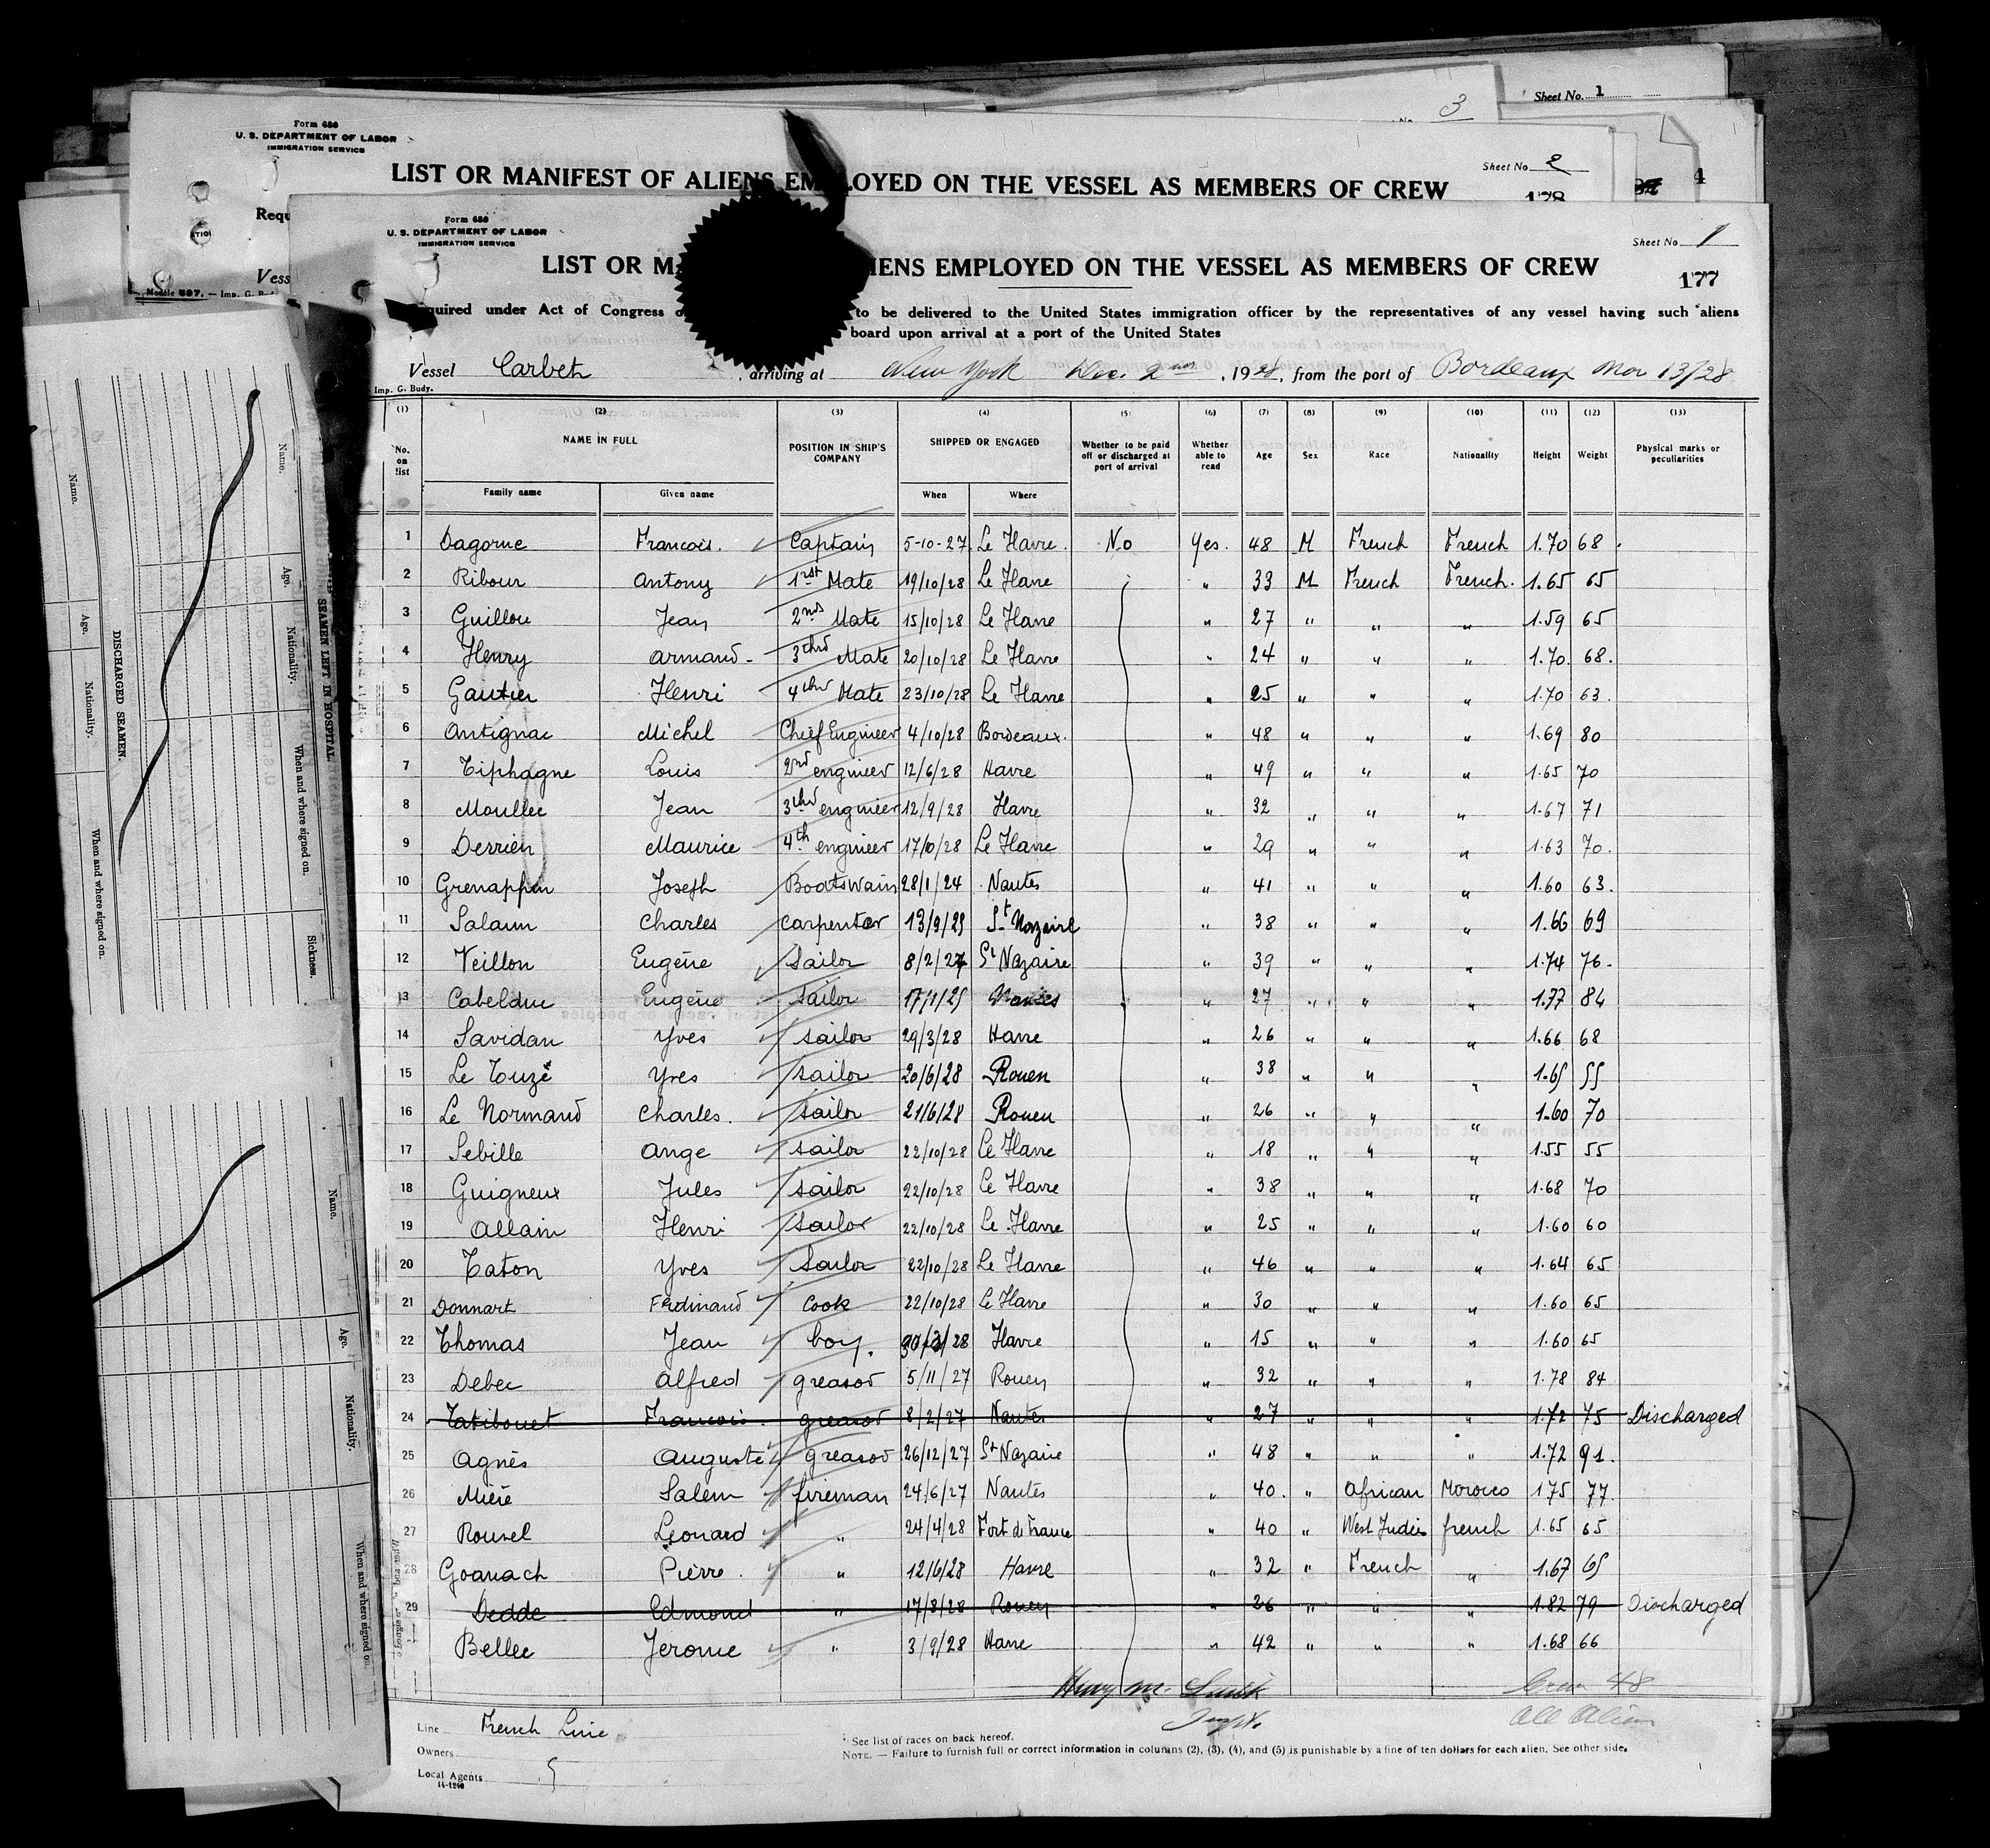 Sheet No. 1
3
Form 680
U. S. DEPARTMENT OF LABOR
IMMIGRATION SERVICE
Sheet No 2
LIST OR MANIFEST OF ALIENS EMPLOYED ON THE VESSEL AS MEMBERS OF CREW
178
4
Requ
Vess
Modèle 597. — Imp. G. Bud
Form 680
U. S. DEPARTMENT OF LABOR
IMMIGRATION SERVICE
Sheet No 1
LIST OR MA IENS EMPLOYED ON THE VESSEL AS MEMBERS OF CREW
177
quired under Act of Congress o to be delivered to the United States immigration officer by the representatives of any vessel having such aliens
board upon arrival at a port of the United States
Vessel Carbet, arriving at New York Dec. 2nd, 1928, from the port of Bordeaux Nov 13/28
Imp. G. Budy.
(1) (2) (3) (4) (5) (6) (7) (8) (9) (10) (11) (12) (13)
No. on list NAME IN FULL POSITION IN SHIP'S COMPANY SHIPPED OR ENGAGED Whether to be paid off or discharged at port of arrival Whether able to read Age Sex Race Nationality Height Weight Physical marks or peculiarities
Family name Given name When Where
1 Dagorne Francois. Captain 5-10-27 Le Havre. No Yes. 48 M French French 1.70 68
2 Ribour Antony 1rst Mate 19/10/28 Le Havre " 33 M French French. 1.65 65
3 Guillou Jean 2nd Mate 15/10/28 Le Havre " 27 " " " 1.59 65
4 Henry Armand 3thrd Mate 20/10/28 Le Havre " 24 " " " 1.70. 68.
5 Gautier Henri 4thr Mate 23/10/28 Le Havre " 25 " " " 1.70 63.
6 Antignac Michel Chief Engineer 4/10/28 Bordeaux. " 48 " " " 1.69 80
7 Tiphagne Louis 2nd engineer 12/6/28 Havre " 49 " " " 1.65 70
8 Moullec Jean 3thrd engineer 12/9/28 Havre 32 " " " 1.67 71
9 Derrien Maurice 4th engineer 17/10/28 Le Havre " 29 " " " 1.63 70.
10 Grenappin Joseph Boatswain 28/1/24 Nantes " 41 " " " 1.60 63.
11 Salaun Charles Carpenter 13/9/25 St Nazaire " 38 " " " 1.66 69
12 Veillon Eugène Sailor 8/2/27 St Nazaire " 39 " " " 1.74 76.
13 Cabelduc Eugène Sailor 17/1/25 Nantes " 27 " " " 1.77 84
14 Savidan Yves Sailor 29/3/28 Havre " 26 " " " 1.66 68
15 Le Touzé Yves Sailor 20/6/28 Rouen " 38 " " " 1.65 55
16 Le Normand Charles. Sailor 21/6/28 Rouen " 26 " " " 1.60 70
17 Sebille Ange Sailor 22/10/28 Le Havre " 18 " " " 1.55 55
18 Guigneux Jules Sailor 22/10/28 Le Havre " 38 " " " 1.68 70
19 Allain Henri Sailor 22/10/28 Le Havre " 25 " " " 1.60 60
20 Taton Yves Sailor 22/10/28 Le Havre " 46 " " " 1.64 65
21 Donnart Ferdinand Cook 22/10/28 Le Havre " 30 " " " 1.60 65
22 Thomas Jean boy. 30/3/28 Havre " 15 " " " 1.60 65
23 Debec Alfred greasor 5/11/27 Rouen " 32 " " " 1.78 84
24 Tatibouet Francois. greasor 8/2/27 Nantes " 27 " " " 1.72 75 Discharged
25 Agnès Auguste greasor 26/12/27 St Nazaire " 48 " " " 1.72 91.
26 Mière Salem fireman 24/6/27 Nantes " 40. " African Morocco 175 77.
27 Rousel Léonard " 24/4/28 Fort de France " 40 " West Judies french 1.65 65
28 Goanach Pierre. " 12/6/28 Havre " 32 " French " 1.67 65
29 Dedde Edmond " 17/8/28 Rouen " 26 " " " 1.82 79 Discharged
Bellec Jerome " 3/9/28 Havre " 42 " " " 1.68 66
Crew 48
All Alien
Line French Line
Owners
Local Agents
14-1240
See list of races on back hereof.
NOTE. — Failure to furnish full or correct information in columns (2), (3), (4), and (5) is punishable by a fine of ten dollars for each alien. See other side.
SEAMEN LEFT IN HOSPITAL
Name. Age. Nationality. When and where signed on. Sickness.
DISCHARGED SEAMEN.
Name. Age. Nationality. When and where signed on.
Name. Age. Nationality. When and where signed on.